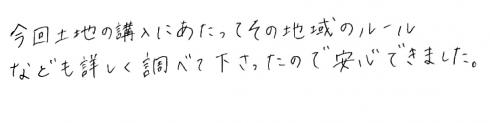 今回土地の購入にあたってその地域のルール
なども詳しく調べて下さったので安心できました。